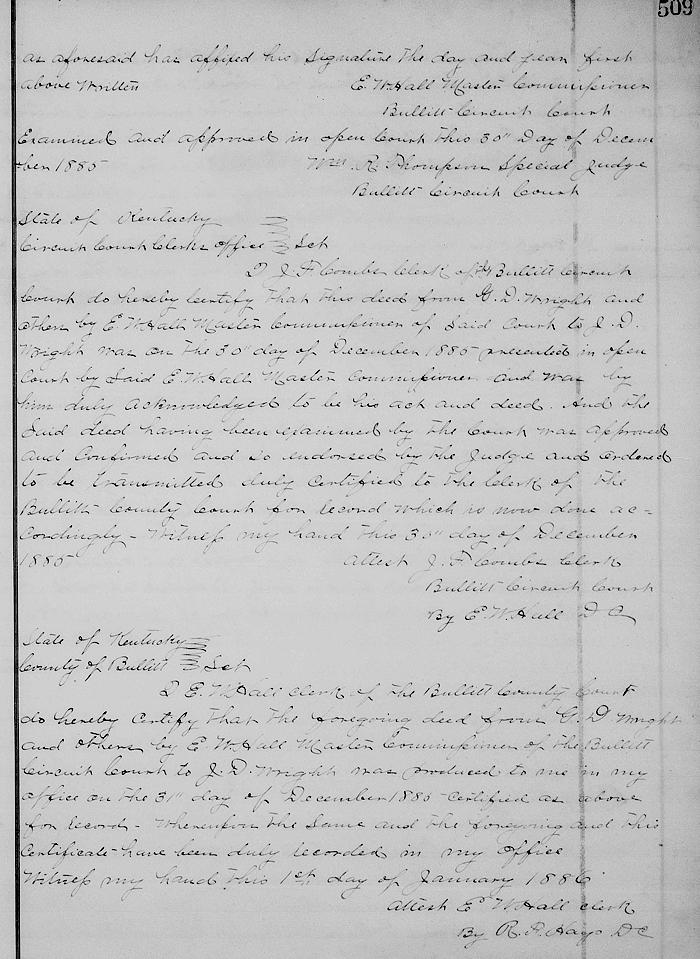 509
as aforesaid has affixed his Signature the day and year first
above written E. W. Hall Master Commissioner
Bullitt Circuit Court
Examined and approved in open Court this 30" Day of Decem
ber 1885 Wm R. Thompson Special Judge
Bullitt Circuit Court
State of Kentucky
Circuit Court Clerks office Sct
I J. F. Combs Clerk of the Bullitt Circuit
Court do hereby Certify that this deed from G. D. Wright and
others by E. W. Hall Master Commissioner of Said Court to J. D.
Wright was on the 30" day of December 1885 presented in open
Court by Said E. W. Hall Master Commissioner and was by
him duly acknowledged to be his act and deed. And the
Said deed having been examined by the Court was approved
and Confirmed and so endorsed by the Judge and ordered
to be transmitted duly Certified to the Clerk of the
Bullitt County Court for record which is now done ac=
cordingly - Witness my hand this 30" day of December
1885 Attest J. F. Combs Clerk
Bullitt Circuit Court
By E. W. Hall D C
State of Kentucky
County of Bullitt Sct
I E. W. Hall Clerk of the Bullitt County Court
do hereby Certify that the foregoing deed from G. D Wright
and others by E. W. Hall Master Commissioner of the Bullitt
Circuit Court to J. D. Wright was produced to me in my
office on the 31" day of December 1885 Certified as above
for record - Whereupon the Same and the foregoing and this
Certificate have been duly recorded in my office
Witness my hand this 1st day of January 1886
Attest E W Hall Clerk
By R. F. Hays D C